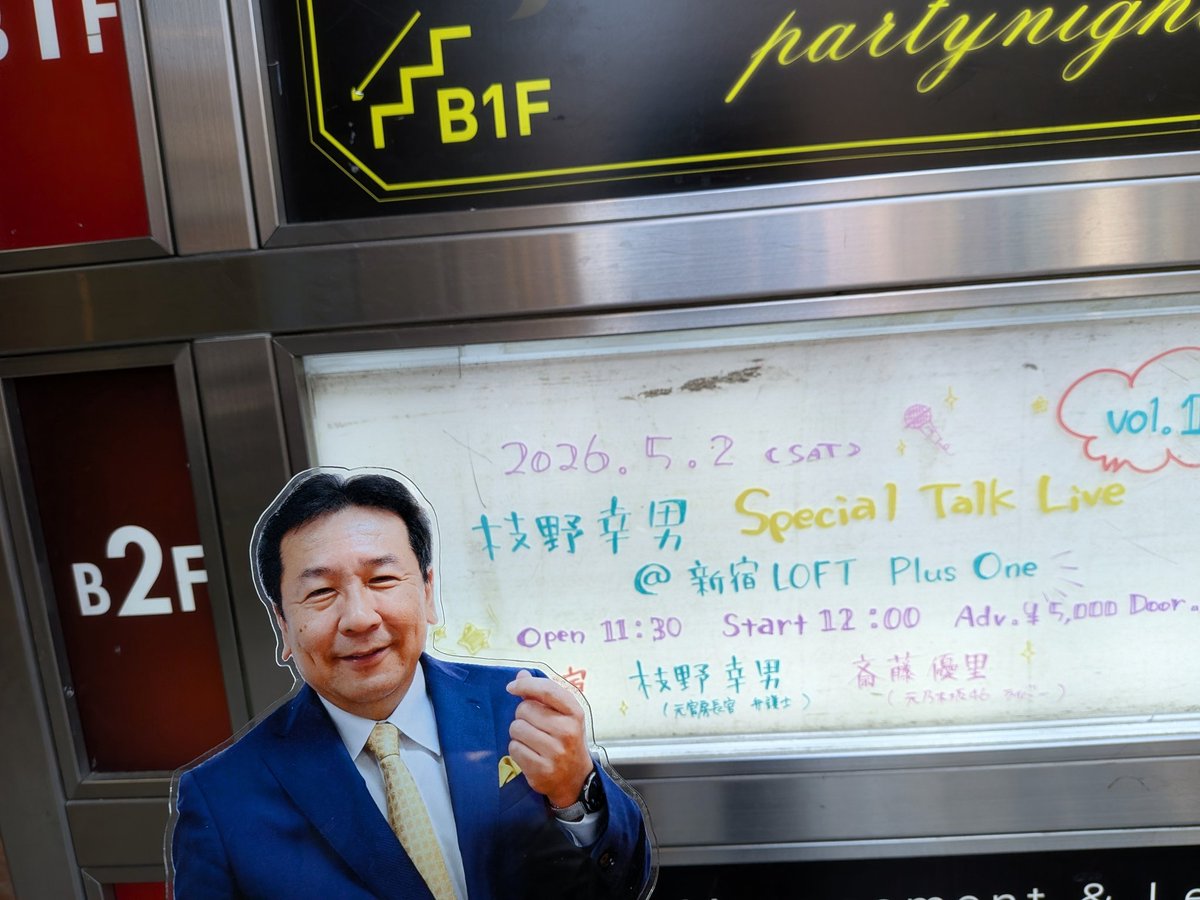 B1F
partynigh
B1F
2026.5.2 (SAT)
vol.1
枝野幸男 Special Talk Live
@ 新宿 LOFT Plus One
B2F
Open 11:30 Start 12:00 Adv.¥5,000 Door.
枝野幸男 斎藤優里
(元官房長官 弁護士) (元乃木坂46
& Le